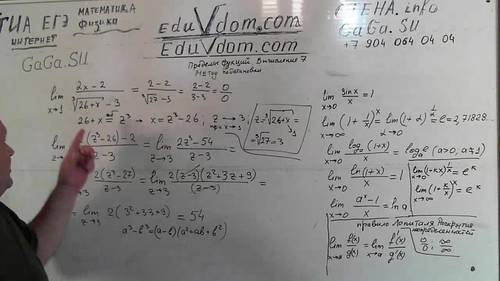 ГИА ЕГЭ
МАТЕМАТИКА
Физика
ИНТЕРНЕТ
GaGa.SU
EduVdom.com
EduVdom.com
Пределы функций Вычисление 7
.info
GaGa.SU
+7 904 064 04 04
lim x→1 (2x-2)/(∛(26+x) - 3) = (2-2)/(∛27 - 3) = (2-2)/(3-3) = 0/0
26+x = z³ → x = z³-26; z → 3, при x→1
z = ∛(26+x) = ∛27 = 3
2(z³-26)-2 / z-3 = lim z→3 (2z³-54)/(z-3) =
2(z³-27)/(z-3) = lim z→3 2(z-3)(z²+3z+9)/(z-3) =
= lim z→3 2(3²+3·3+9) = 54
a³-b³=(a-b)(a²+ab+b²)
lim x→0 sinx/x = 1
lim x→∞ (1+1/x)^x = lim α→0 (1+α)^(1/α) = e = 2,71828...
lim x→0 logₐ(1+x)/x = logₐe (a>0, a≠1)
lim x→0 ln(1+x)/x = 1
lim x→0 (1+kx)^(1/x) = e^k
lim x→∞ (1+k/x)^x = e^k
lim x→0 (a^x-1)/x = ln a
правило Лопиталя Раскрытие неопределенностей
lim x→a f(x)/g(x) = lim x→a f'(x)/g'(x)
0/0, ∞/∞